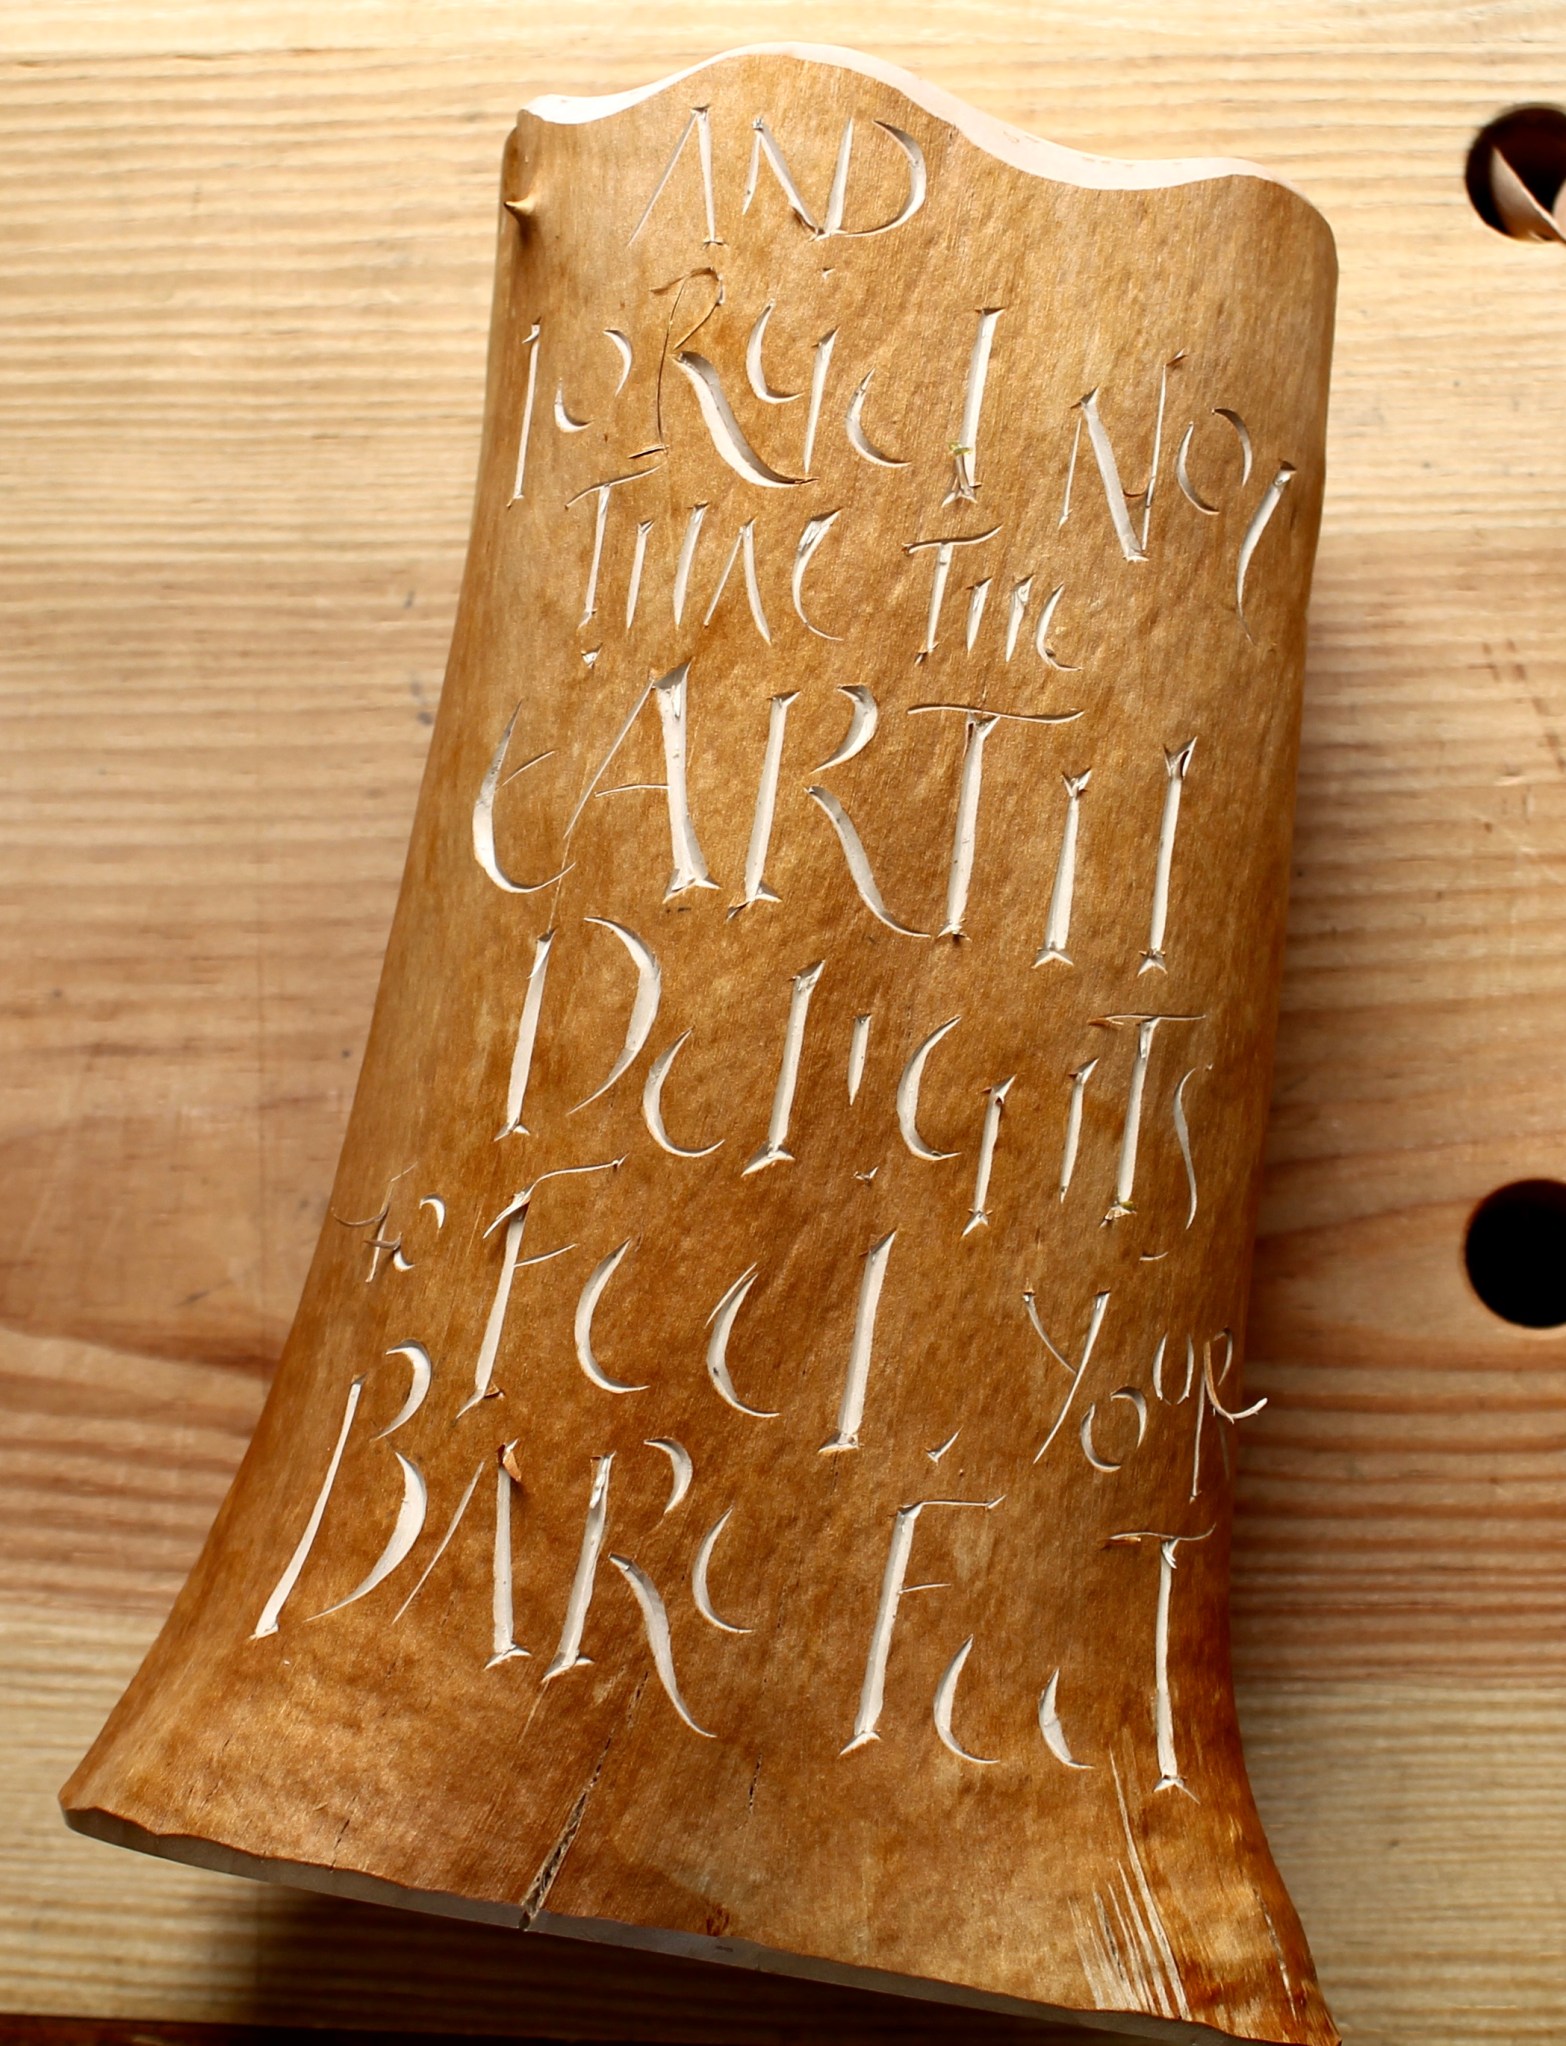 AND
FORGET NOT
THAT THE
EARTH
DELIGHTS
to FEEL YOUR
BARE FEET